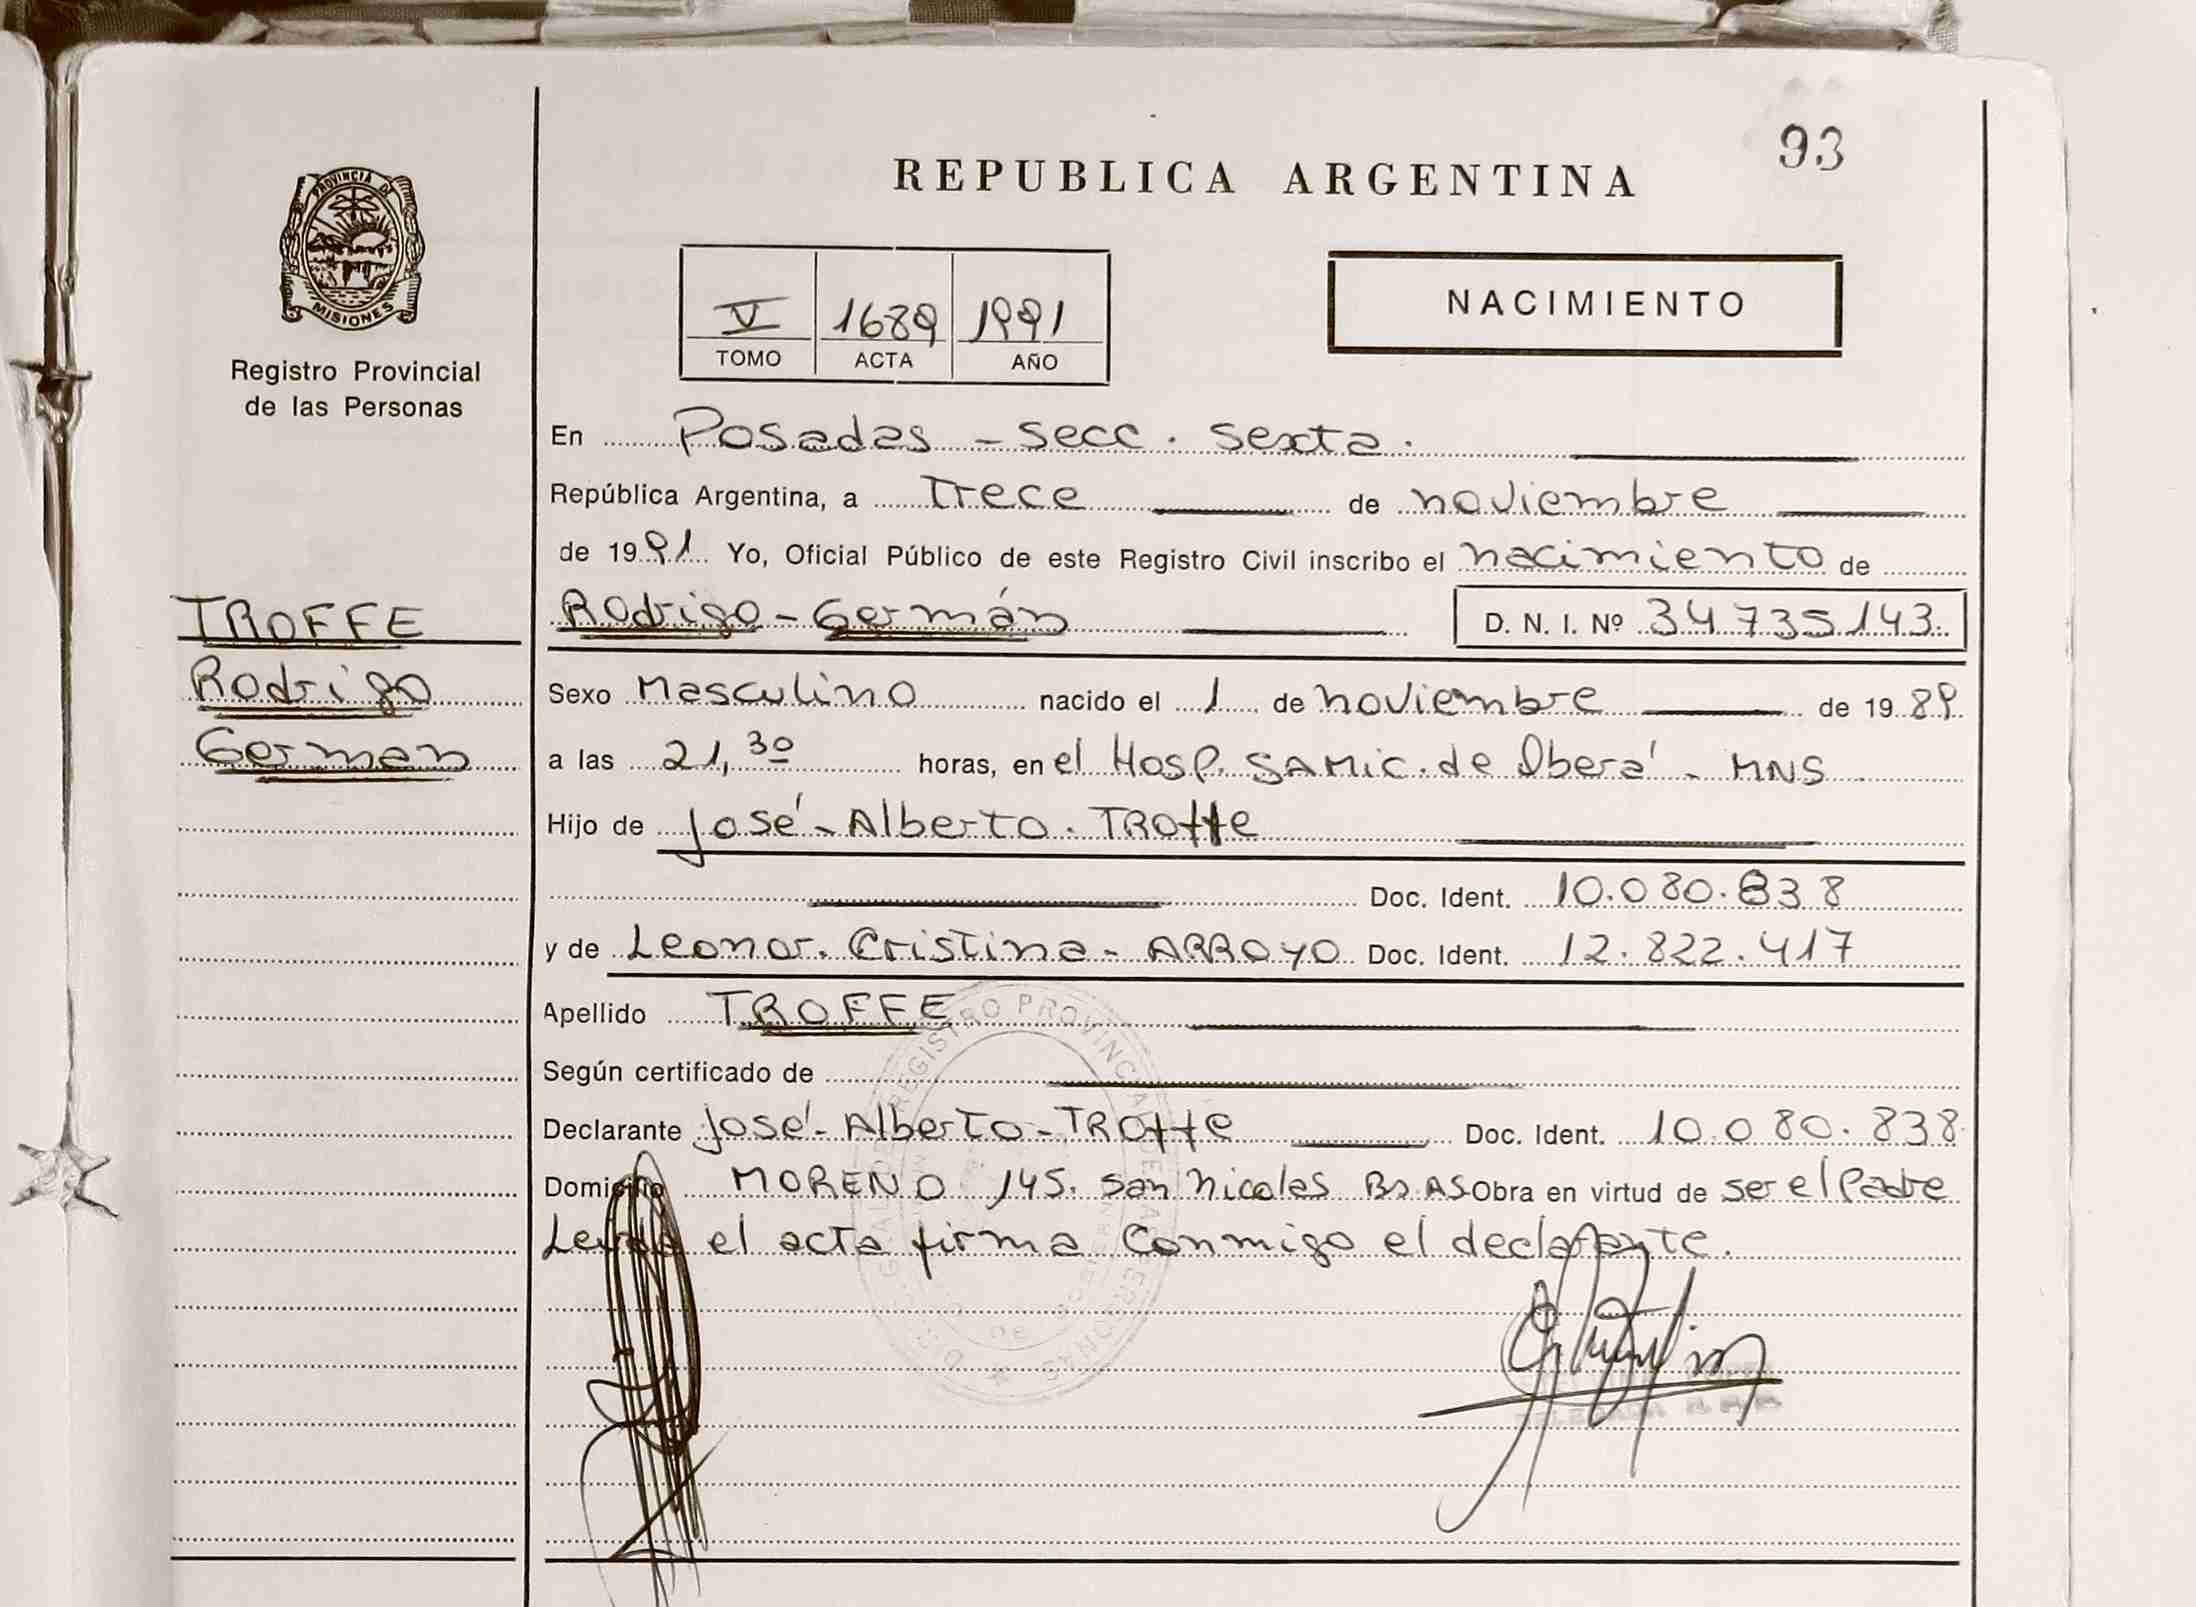 93
REPUBLICA ARGENTINA
PROVINCIA DE
MISIONES
Registro Provincial
de las Personas
V 1689 1991
TOMO ACTA AÑO
NACIMIENTO
En Posadas - Secc. Sexta.
República Argentina, a Trece de noviembre
de 1991 Yo, Oficial Público de este Registro Civil inscribo el nacimiento de
TROFFE
Rodrigo
German
Rodrigo - Germán D. N. I. Nº 34735143.
Sexo Masculino nacido el 1 de noviembre de 1989
a las 21,30 horas, en el Hosp. SAMIC. de Oberá - MNS
Hijo de José - Alberto. TROffe
Doc. Ident. 10.080.838
y de Leonor. Cristina - ARROYO Doc. Ident. 12.822.417
Apellido TROFFE
Según certificado de
Declarante José - Alberto - TROffe Doc. Ident. 10.080.838
Domicilio MORENO 145. San Nicolas Bs AS Obra en virtud de ser el Padre
Leida el acta firma Conmigo el declarante.
REGISTRO PROVINCIAL DE LAS PERSONAS